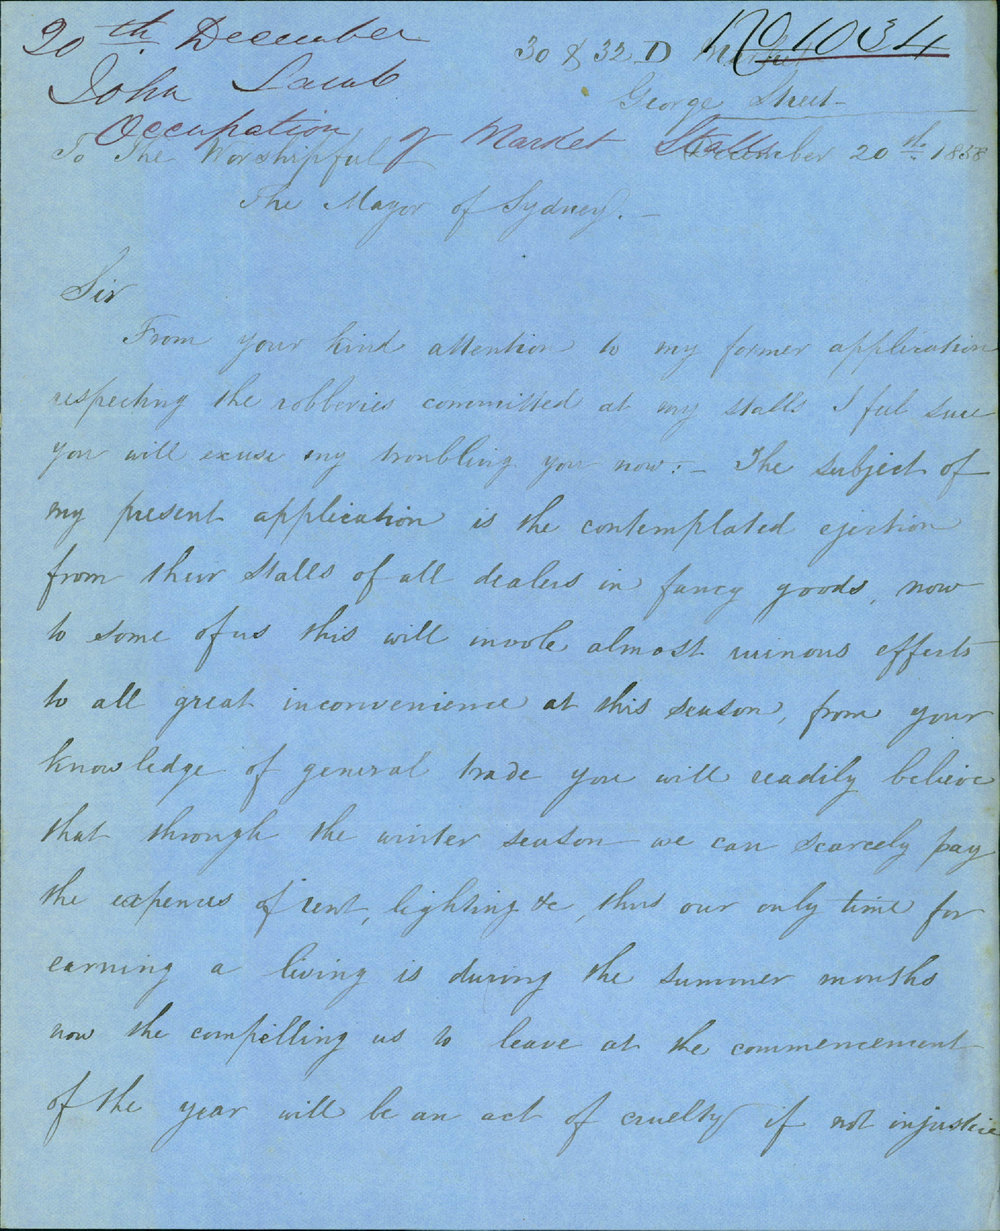 20th December
No 1034
John Lamb
Occupation of Market Stalls
30 & 32 D Market
George Street
December 20th 1858
To The Worshipful
The Mayor of Sydney. -
Sir
From your kind attention to my former application
respecting the robberies committed at my stalls I feel sure
you will excuse my troubling you now:- The subject of
my present application is the contemplated ejection
from their stalls of all dealers in fancy goods, now
to some of us this will invole almost ruinous effects
to all great inconvenience at this season, from your
knowledge of general trade you will readily believe
that through the winter season we can scarcely pay
the expences of rent, lighting &c, thus our only time for
earning a living is during the summer months
now the compelling us to leave at the commencement
of the year will be an act of cruelty if not injustice